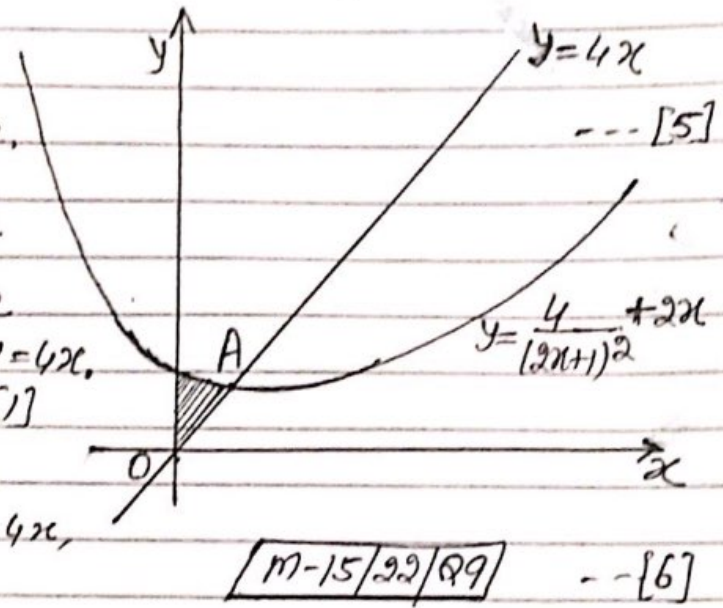 y
y=4x
--- [5]
y= 4/(2x+1)² +2x
A
=4x.
O
x
4x,
M-15/22/Q9
--[6]